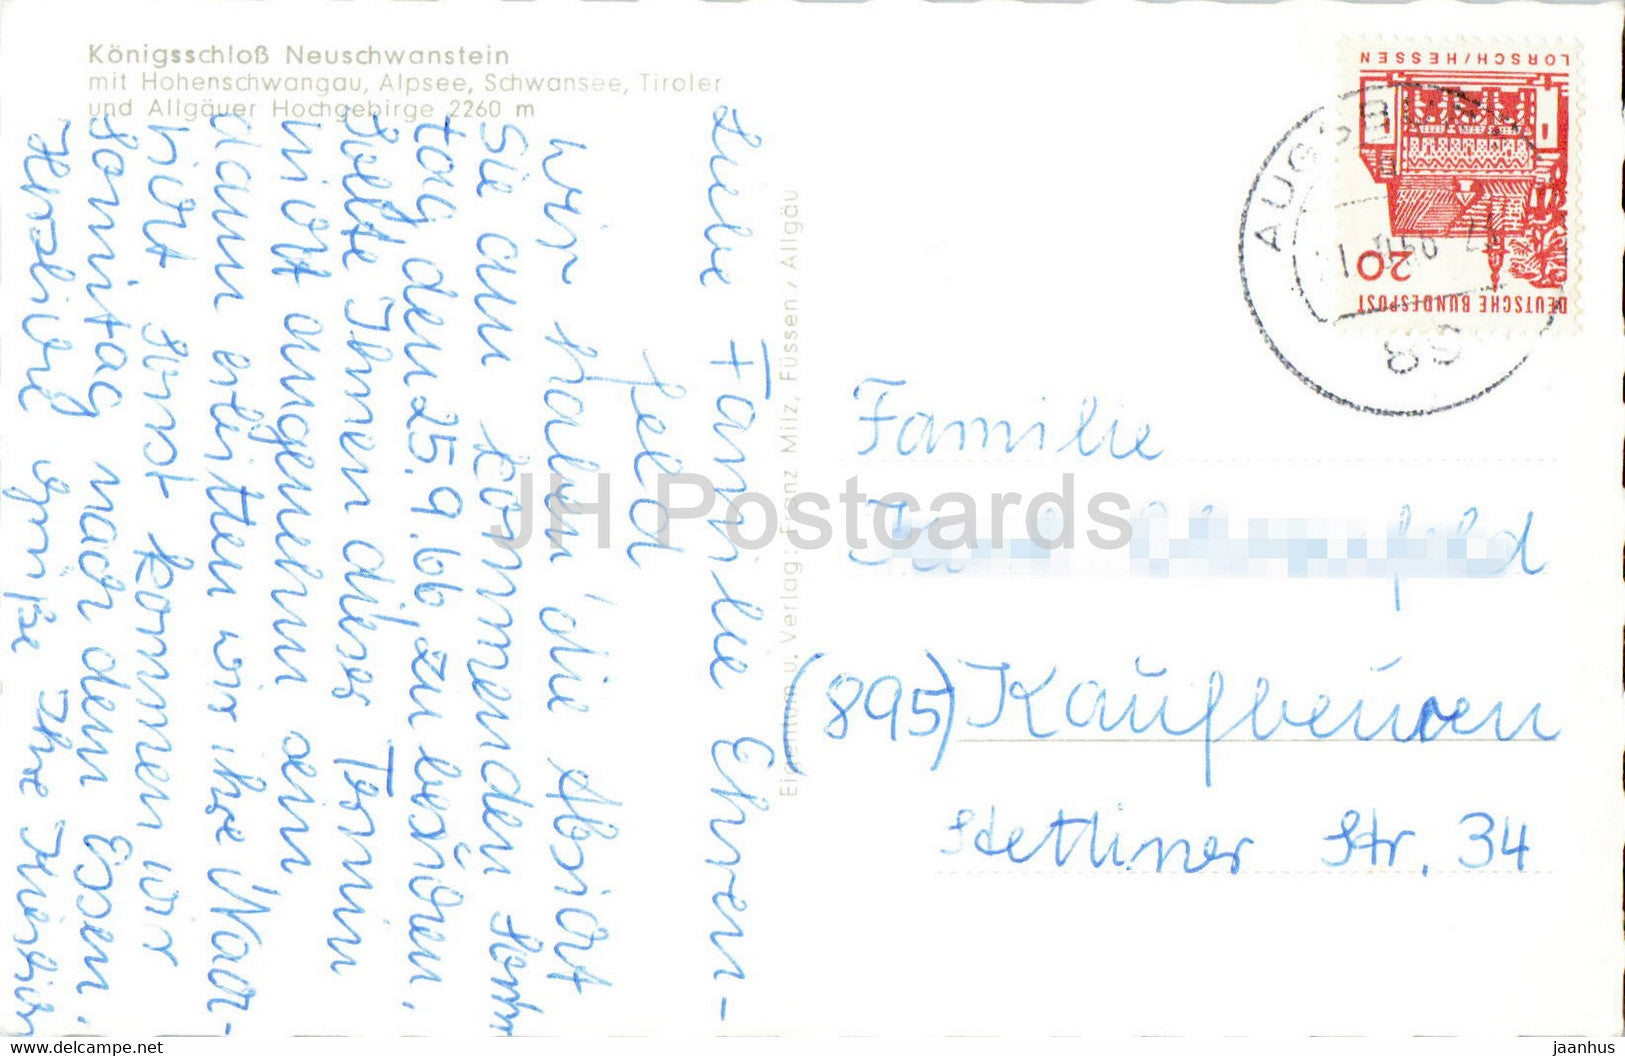 Königsschloß Neuschwanstein
mit Hohenschwangau, Alpsee, Schwansee, Tiroler
und Allgäuer Hochgebirge 2260 m
Liebe Familie Ehren-
feld
Wir haben die Absicht
Sie am kommenden Sonn
tag den 25.9.66, zu besuchen,
Sollte Ihnen dieser Termin
nicht angenehm sein
dann erbitten wir ihre Nach-
richt sonst kommen wir
Sonntag nach dem Essen.
Herzliche Grüße Ihre
Eigentum u. Verlag: Franz Milz, Füssen / Allgäu
DEUTSCHE BUNDESPOST
20
LORSCH/HESSEN
AUGSBURG
Familie
feld
(895) Kaufbeuren
Stettiner Str. 34
JH Postcards
www.delcampe.net
jaanhus